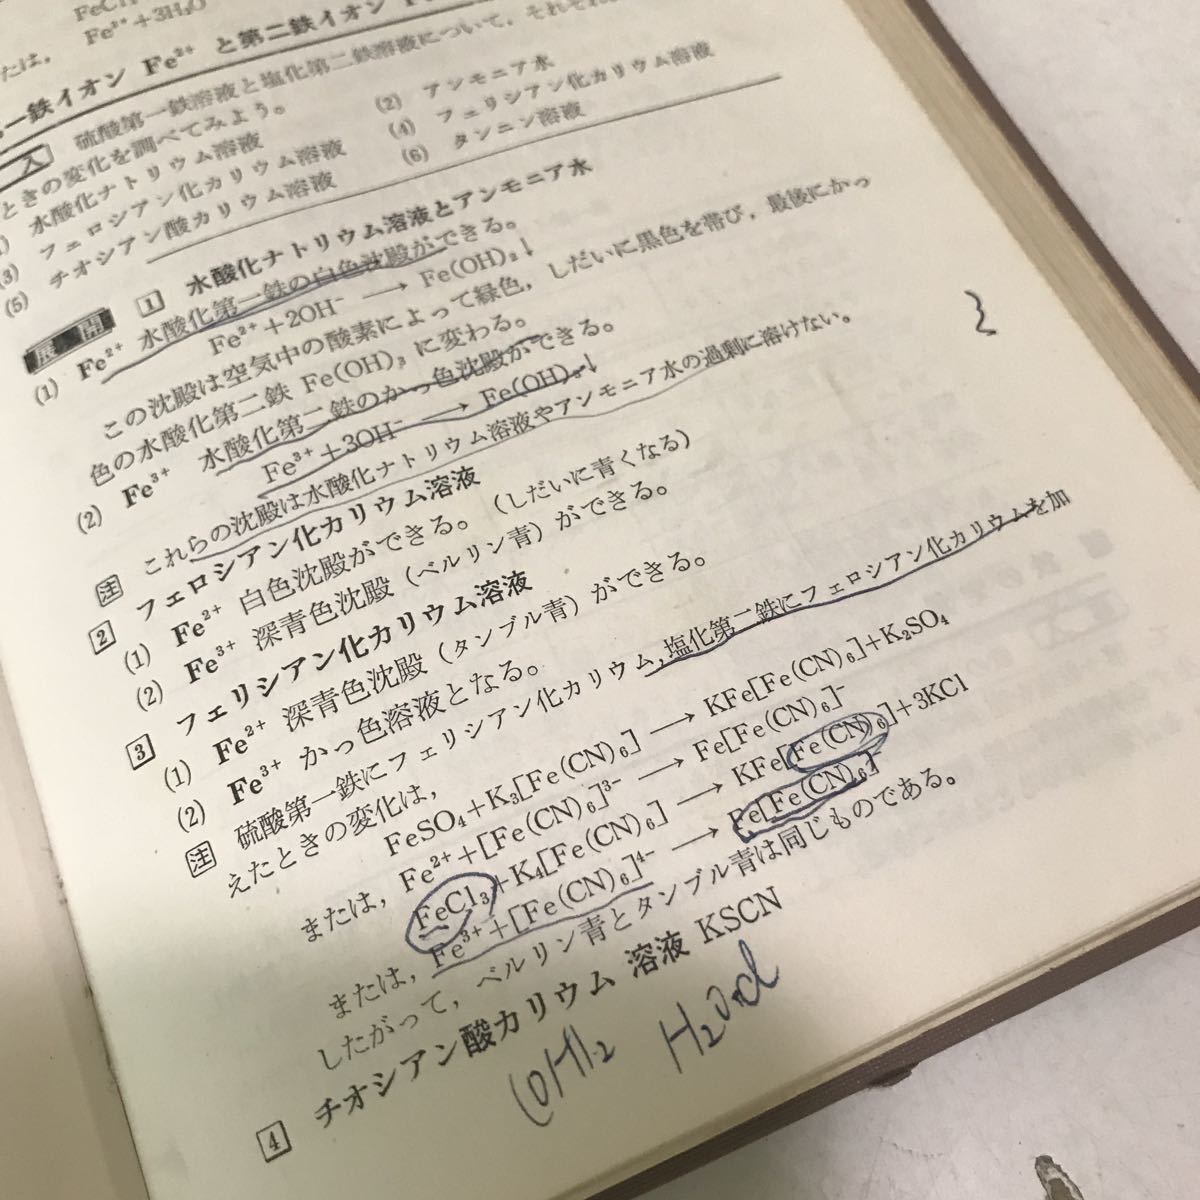 FeCl
たは, Fe³⁺+3H₂O
一鉄イオン Fe²⁺ と第二鉄イオン
入 硫酸第一鉄溶液と塩化第二鉄溶液について, それぞれ
ときの変化を調べてみよう。
水酸化ナトリウム溶液 (2) アンモニア水
(3) フェロシアン化カリウム溶液 (4) フェリシアン化カリウム溶液
(5) チオシアン酸カリウム溶液 (6) タンニン溶液
展開 1 水酸化ナトリウム溶液とアンモニア水
(1) Fe²⁺ 水酸化第一鉄の白色沈殿ができる。
Fe²⁺+2OH⁻ ⟶ Fe(OH)₂↓
この沈殿は空気中の酸素によって緑色, しだいに黒色を帯び, 最後にかっ
色の水酸化第二鉄 Fe(OH)₃ に変わる。
(2) Fe³⁺ 水酸化第二鉄のかっ色沈殿ができる。
Fe³⁺+3OH⁻ ⟶ Fe(OH)₃↓
注 これらの沈殿は水酸化ナトリウム溶液やアンモニア水の過剰に溶けない。
2 フェロシアン化カリウム溶液
(1) Fe²⁺ 白色沈殿ができる。(しだいに青くなる)
(2) Fe³⁺ 深青色沈殿(ベルリン青)ができる。
3 フェリシアン化カリウム溶液
(1) Fe²⁺ 深青色沈殿(タンブル青)ができる。
(2) Fe³⁺ かっ色溶液となる。
注 硫酸第一鉄にフェリシアン化カリウム, 塩化第二鉄にフェロシアン化カリウムを加
えたときの変化は,
FeSO₄+K₃[Fe(CN)₆] ⟶ KFe[Fe(CN)₆]+K₂SO₄
または, Fe²⁺+[Fe(CN)₆]³⁻ ⟶ Fe[Fe(CN)₆]⁻
FeCl₃+K₄[Fe(CN)₆] ⟶ KFe[Fe(CN)₆]+3KCl
または, Fe³⁺+[Fe(CN)₆]⁴⁻ ⟶ Fe[Fe(CN)₆]⁻
したがって, ベルリン青とタンブル青は同じものである。
4 チオシアン酸カリウム 溶液 KSCN
(OH)₂